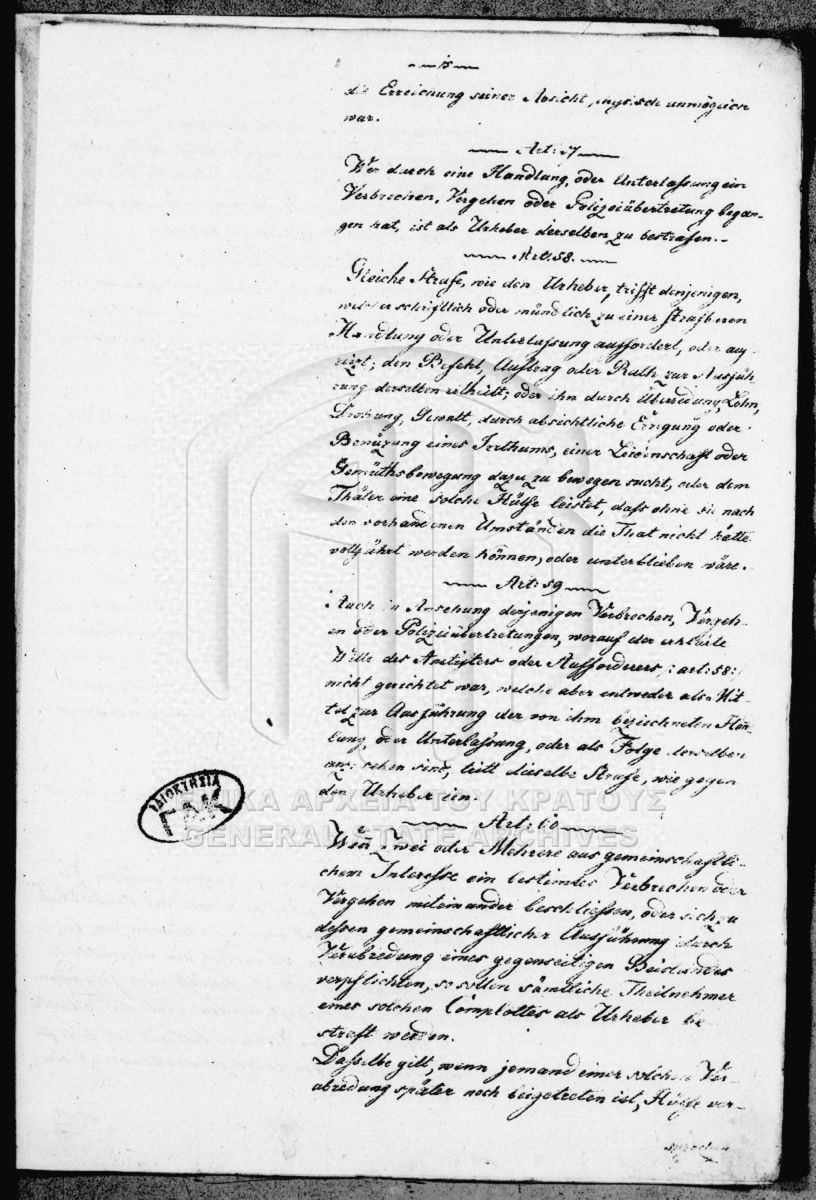 die Erreichung seiner Absicht, physisch unmöglich
war.
Art: 57
Wer durch eine Handlung, oder Unterlassung ein
Verbrechen, Vergehen oder Polizeiübertretung began-
gen hat, ist als Urheber derselben zu bestrafen.-
Art: 58.
Gleiche Strafe, wie den Urheber, trifft denjenigen,
welcher schriftlich oder mündlich zu einer strafbaren
Handlung oder Unterlassung auffordert, oder an-
reizt; den Befehl, Auftrag oder Rath zur Ausfüh-
rung derselben ertheilt; oder ihn durch Überredung, Lohn,
Drohung, Gewalt, durch absichtliche Erregung oder
Benüzung eines Irrthums, einer Leidenschaft oder
Gemüthsbewegung dazu zu bewegen sucht, oder dem
Thäter eine solche Hülfe leistet, dass ohne sie nach
den vorhandenen Umständen die That nicht hätte
vollführt werden können, oder unterblieben wäre.
Art: 59
Auch in Ansehung derjenigen Verbrechen, Vergeh-
en oder Polizeiübertretungen, worauf der erklärte
Wille des Anstifters oder Aufforderers, : art: 58 :
nicht gerichtet war, welche aber entweder als Mit-
tel zur Ausführung der von ihm bezeichneten Han-
lung, oder Unterlassung, oder als Folge derselben
anzusehen sind, tritt dieselbe Strafe, wie gegen
den Urheber ein.
Art: 60
Wenn zwei oder Mehrere aus gemeinschaftli-
chem Interesse ein bestimtes Verbrechen oder
Vergehen miteinander beschliessen, oder sich zu
dessen gemeinschaftlicher Ausführung durch
Verabredung eines gegenseitigen Beistandes
verpflichten, so sollen sämtliche Theilnehmer
eines solchen Complottes als Urheber be
straft werden.
Dasselbe gilt, wenn jemand einer solchen Ver-
abredung später noch beigetreten ist, Hülfe ver-
sprochen
ΙΔΙΟΚΤΗΣΙΑ
ΓΑΚ
ΓΕΝΙΚΑ ΑΡΧΕΙΑ ΤΟΥ ΚΡΑΤΟΥΣ
GENERAL STATE ARCHIVES